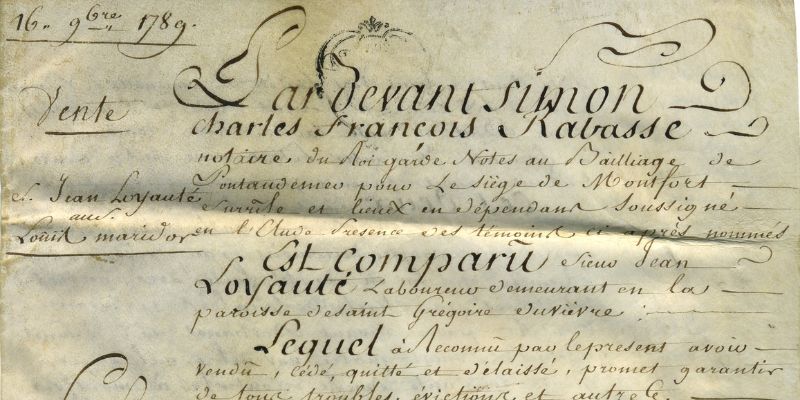 16. 9bre 1789.
Vente
S. Jean Loyauté
au S.
Louis maridor
Par devant simon
charles François Rabasse
notaire du Roi garde Notes au Bailliage de
Pontaudemer pour Le siège de Montfort
Surrile et lieux en dépendans soussigné
en l'Etude Presence des témoins ci après nommés
Est comparû sieur Jean
Loyauté Laboureur demeurant en la
paroisse desaint Grégoire duvièvre
Lequel à Reconnû par leprésent avoir
vendû, cédé, quitté et délaissé, promet garantir
de tous troubles, évictions et autres